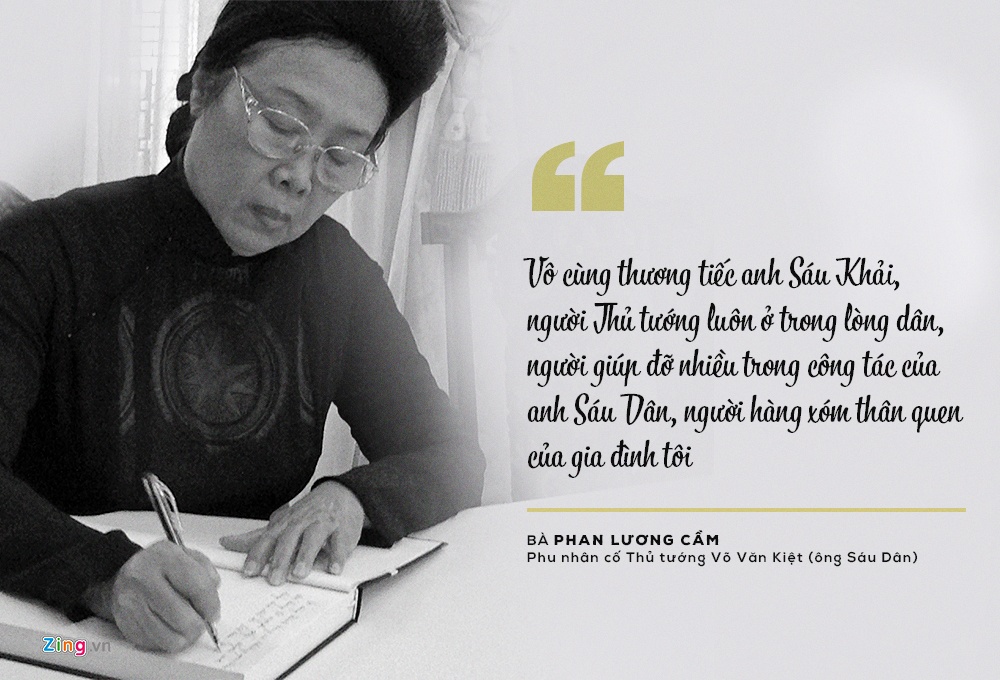 Vô cùng thương tiếc anh Sáu Khải,
người Thủ tướng luôn ở trong lòng dân,
người giúp đỡ nhiều trong công tác của
anh Sáu Dân, người hàng xóm thân quen
của gia đình tôi
BÀ PHAN LƯƠNG CẦM
Phu nhân cố Thủ tướng Võ Văn Kiệt (ông Sáu Dân)
Zing.vn